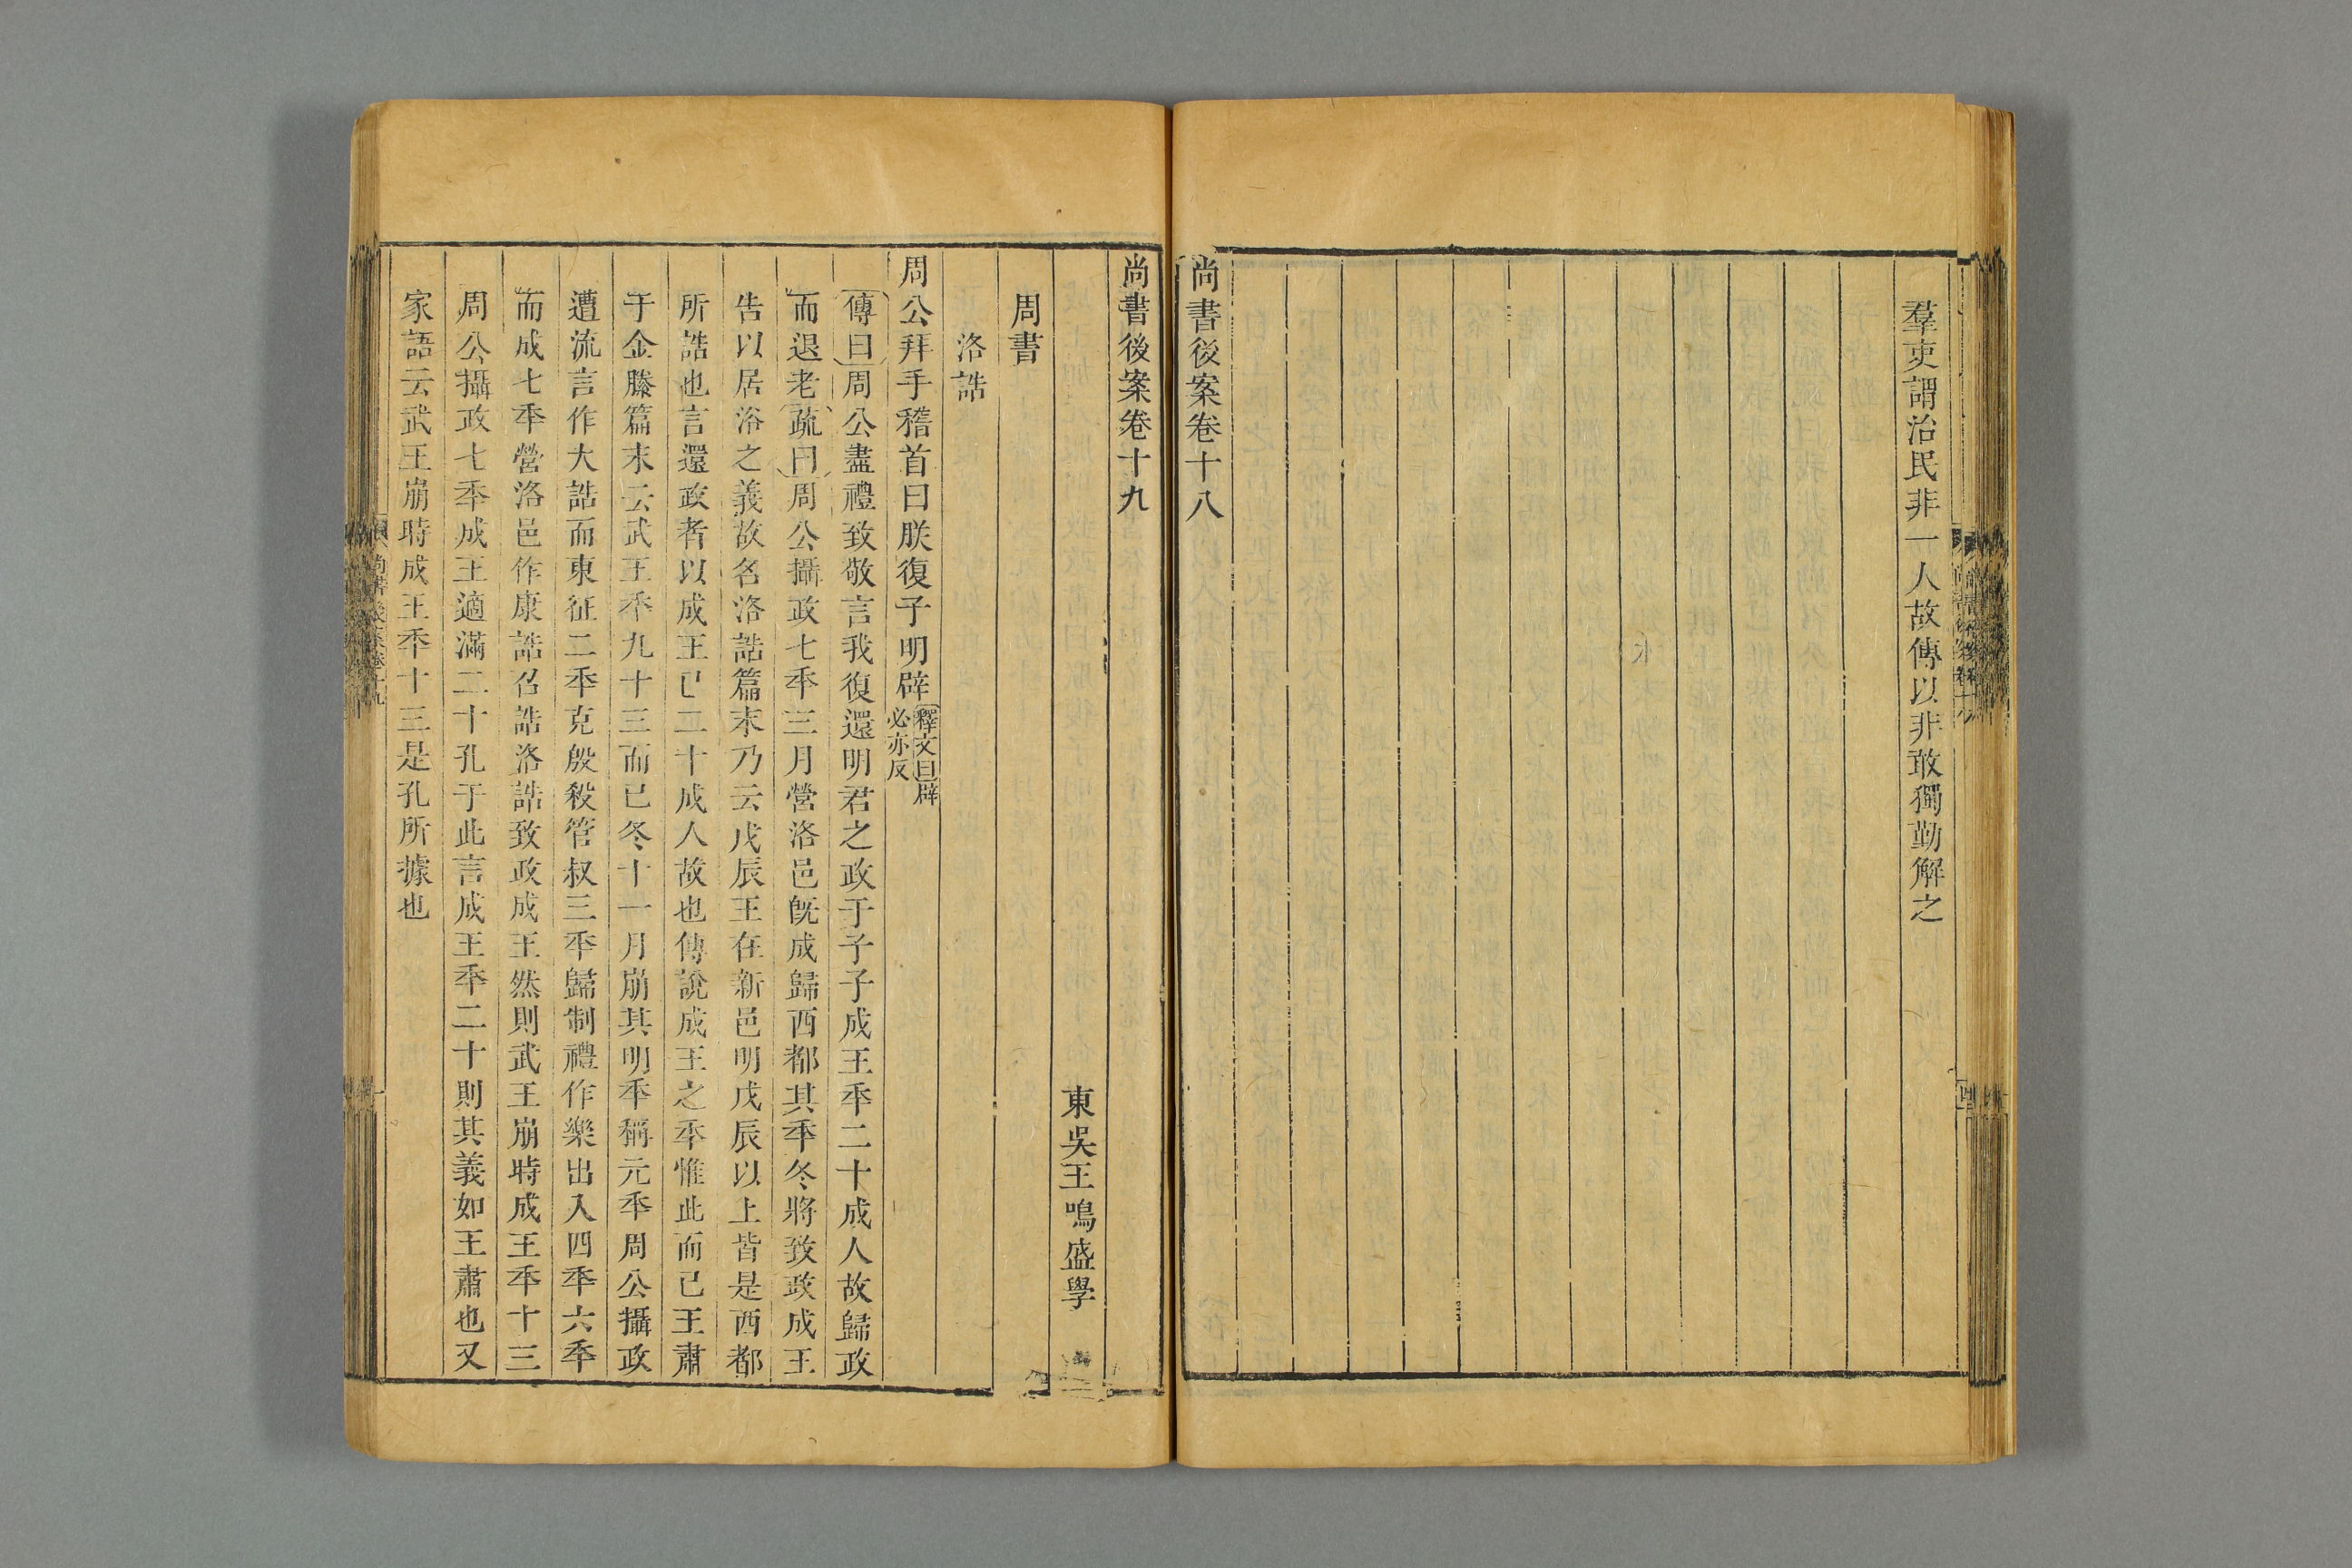 羣吏謂治民非一人故傳以非敢獨勤解之
尚書後案卷十八
尚書後案卷十九
東吳王鳴盛學
周書
洛誥
周公拜手稽首曰朕復子明辟釋文曰辟
必亦反
傳曰周公盡禮致敬言我復還明君之政于子子成王秊二十成人故歸政
而退老疏曰周公攝政七秊三月營洛邑旣成歸西都其秊冬將致政成王
告以居洛之義故名洛誥篇末乃云戊辰王在新邑明戊辰以上皆是西都
所誥也言還政者以成王已二十成人故也傳說成王之秊惟此而已王肅
于金縢篇末云武王秊九十三而已冬十一月崩其明秊稱元秊周公攝政
遭流言作大誥而東征二秊克殷殺管叔三秊歸制禮作樂出入四秊六秊
而成七秊營洛邑作康誥召誥洛誥致政成王然則武王崩時成王秊十三
周公攝政七秊成王適滿二十孔于此言成王秊二十則其義如王肅也又
家語云武王崩時成王秊十三是孔所據也
尚書後案卷十九